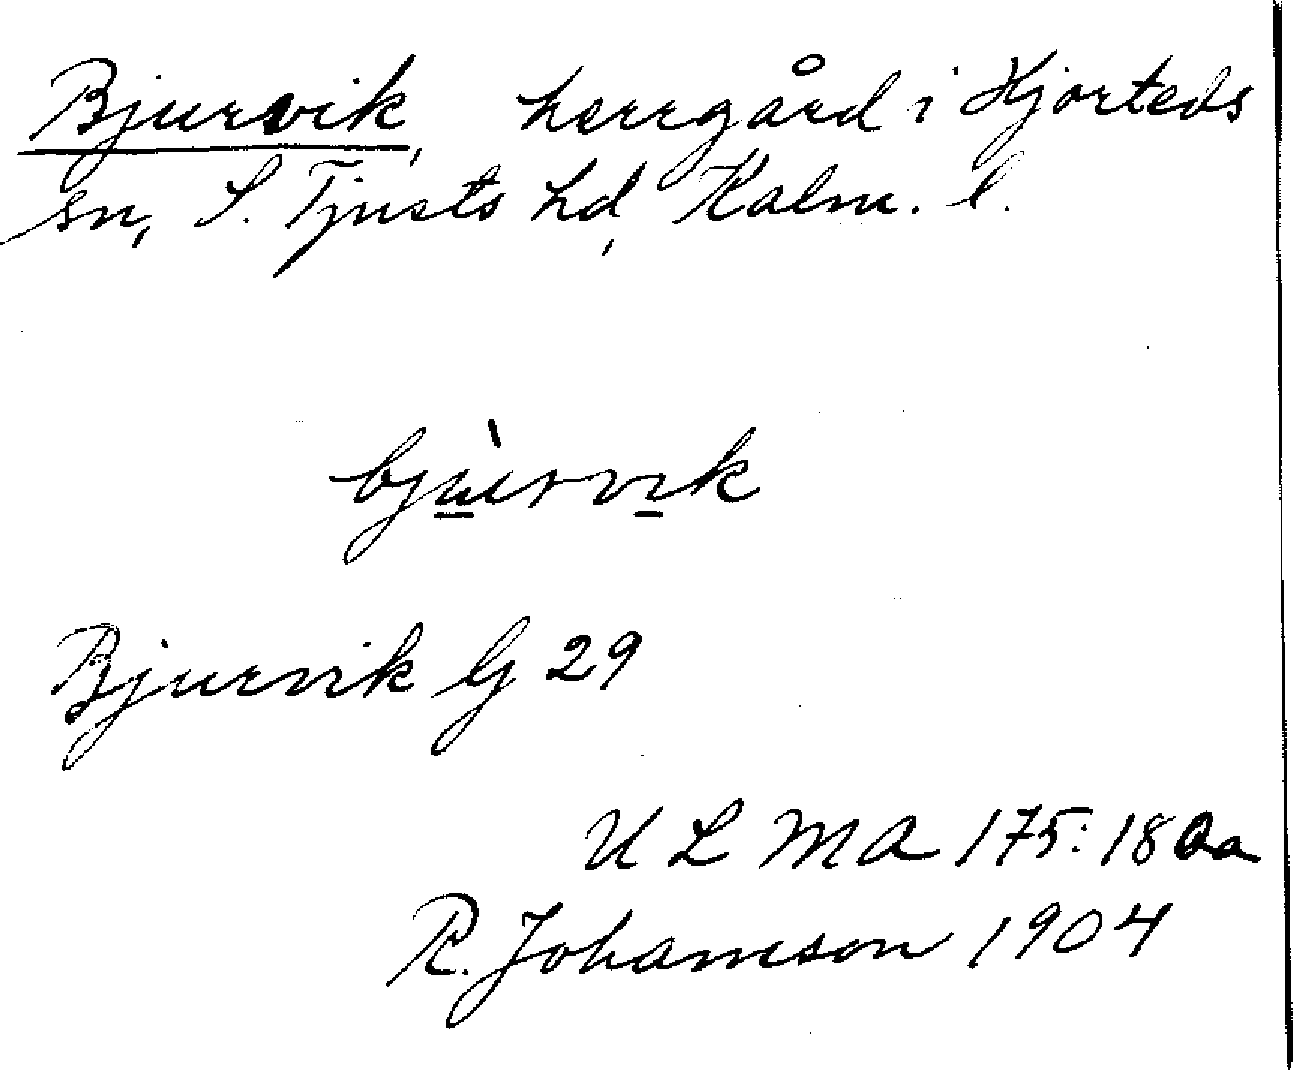 Bjurvik, herrgård i Hjorteds
sn, S. Tjusts hd, Kalm. l.
bjù̲rvi̲k
Bjurvik G 29
ULMA 175:18
R. Johansson 1904